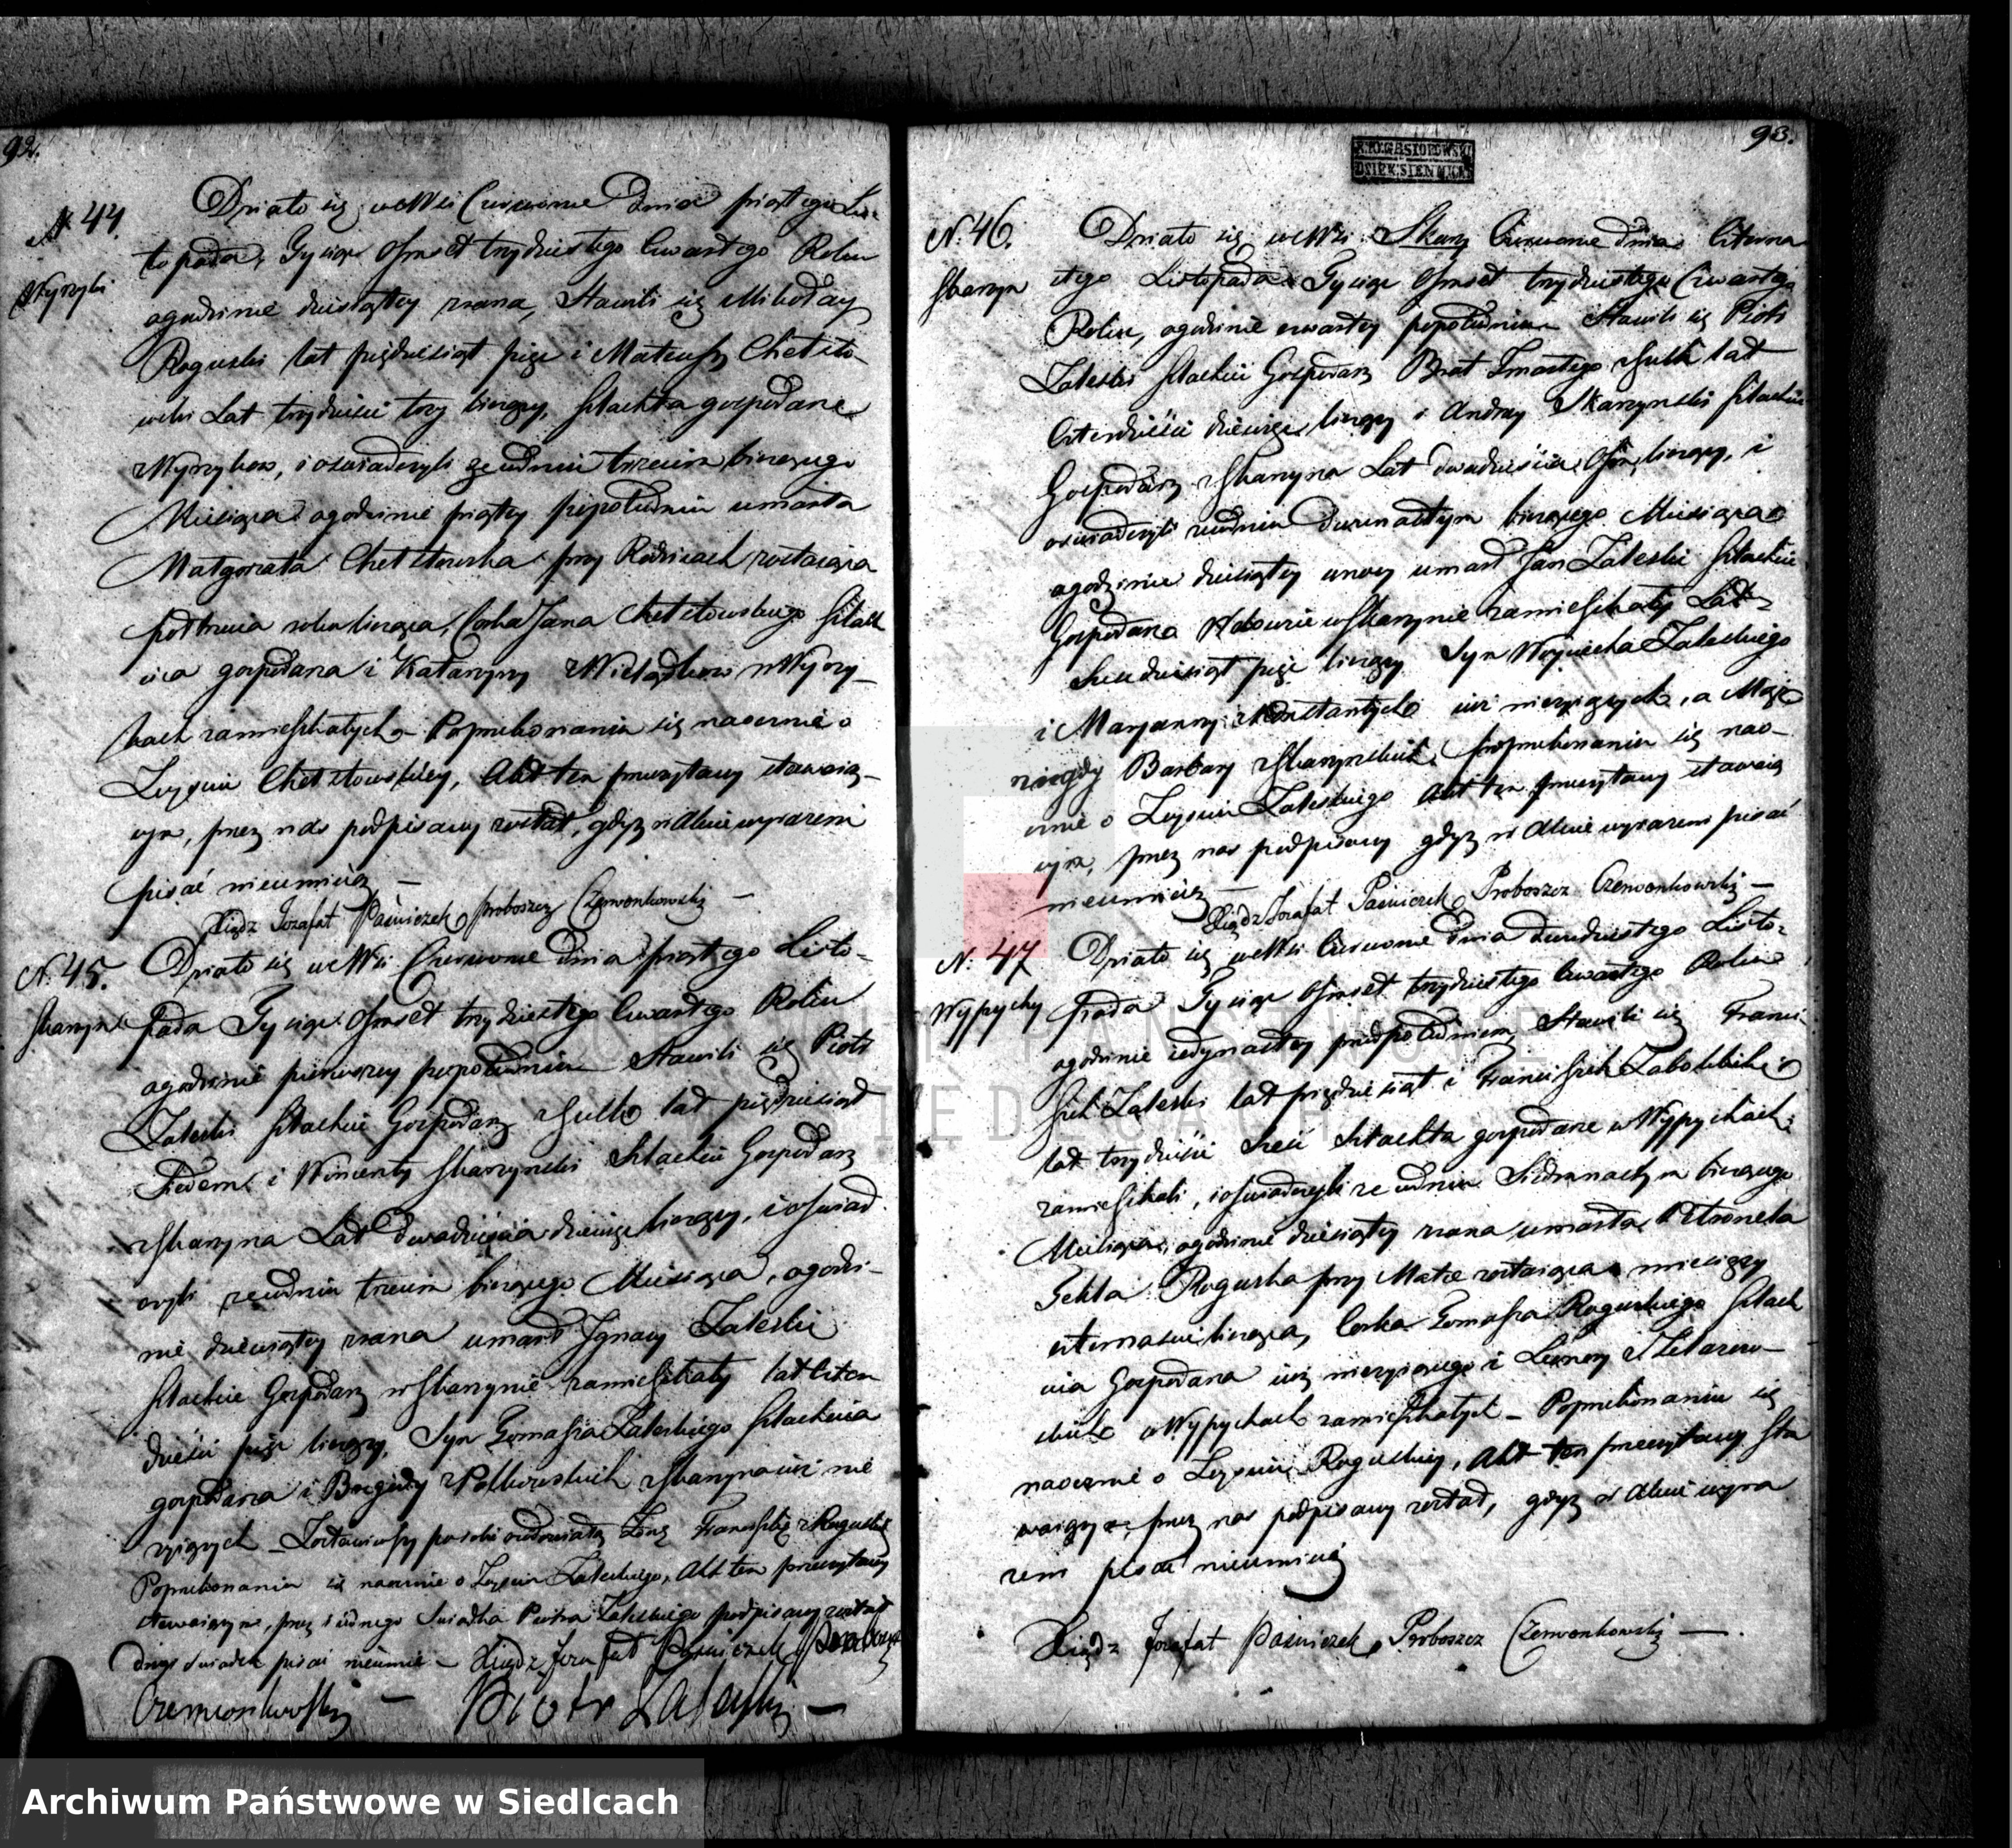 92.
N 44.
Wyrzyki
Działo się we Wsi Czerwonce Dnia piątego Lis-
topada, Tysiąc Ośmset trzydziestego Czwartego Roku
ogodzinie dziesiątey zrana, Stawili się Mikołay
Roguski lat pięćdziesiąt pięć i Mateusz Chełsto-
wski Lat trzydzieści trzy liczący, Szlachta gospodarze
Wyrzyków, i oświadczyli że wdniu trzecim bieżącego
Miesiąca ogodzinie piątey popołudniu umarła
Małgorzata Chełstowska przy Rodzicach zostaiąca
półtrzecia roku licząca, Corka Jana Chełstowskiego Szlach
cica gospodarza i Katarzyny w Wyrzy-
kach zamieszkałych Poprzekonaniu się naocznie o
Zeyściu Chełstowskiey, Akt ten przeczytany stawaią-
cym, przez nas podpisany został, gdyż w Akcie wyrażeni
pisać nieumieią —
Xiądz Jozafat Paśniczek Proboszcz Czerwonkowski —
N. 45.
Skarzyn
Działo się we Wsi Czerwonce Dnia piątego Listo-
pada Tysiąc Ośmset trzydziestego Czwartego Roku
ogodzinie pierwszey popołudniu Stawili się Piotr
Zaleski Szlachcic Gospodarz z Suk lat pięćdziesiąt
Siedem i Wincenty Skarzynski Szlachcic Gospodarz
z Skarzyna Lat dwadzieścia dziewięć liczący, i oświad
czyli że wdniu trzecim bieżącego Miesiąca, ogodzi-
nie dziewiątey zrana umarł Ignacy Zaleski
Szlachcic Gospodarz w Skarzynie zamieszkały lat Czter
dzieści pięć liczący, Syn Tomasza Zaleskiego Szlachcica
gospodarza i Brygidy z Skarzyna iuż nie
żyiących — Zostawiwszy posobie owdowiałą Żonę Franciszkę z Roguskich
Poprzekonaniu się naocznie o Zeyściu Zaleskiego, Akt ten przeczytany
stawaiącym, przez iednego Świadka Piotra Zaleskiego podpisany został
drugi świadek pisać nieumie — Xiądz Jozafat Paśniczek Proboszcz
Czerwonkowski — Piotr Zaleski —
93.
N. 46.
Skarzyn
Działo się we Wsi Skarz Czerwonce Dnia Czterna
stego Listopada Tysiąc Ośmset trzydziestego Czwartego
Roku, ogodzinie czwartey popołudniu Stawili się Piotr
Zaleski Szlachcic Gospodarz Brat Zmarłego z Suk lat
Czterdzieści dziewięć liczący i Andrzey Skarzynski Szlachcic
Gospodarz z Skarzyna Lat dwadzieścia Ośm liczący, i
oświadczyli że wdniu Dwunastym bieżącego Miesiąca
ogodzinie dziesiątey wnocy umarł Jan Zaleski Szlachcic
Gospodarz Wdowiec w Skarzynie zamieszkały Lat
Sześćdziesiąt pięć liczący Syn Woyciecha Zaleskiego
i Maryanny iuż nieżyiących, a Mąż
niegdy Barbary z Skarzynskich, poprzekonaniu się nao-
cznie o Zeyściu Zaleskiego Akt ten przeczytany stawaią
cym, przez nas podpisany gdyż w Akcie wyrażeni pisać
nieumieią —
Xiądz Jozafat Paśniczek Proboszcz Czerwonkowski —
N. 47
Wypychy
Działo się we Wsi Czerwonce Dnia dwudziestego Listo-
pada Tysiąc Ośmset trzydziestego Czwartego Roku
ogodzinie iedynastey przedpołudniem, Stawili się Franci-
szek Zaleski lat pięćdziesiąt i Franciszek
lat trzydzieści Sześć Szlachta gospodarze w Wypychach
zamieszkali, i oświadczyli że wdniu Siedmnastym bieżącego
Miesiąca, ogodzinie dziesiątey zrana umarła Petronela
Tekla Roguska przy Matce zostaiąca miesięcy
czternaście licząca, Corka Tomasza Roguskiego Szlach
cica Gospodarza iuż nieżyiącego i
w Wypychach zamieszkałych — Poprzekonaniu się
naocznie o Zeyściu Roguskiey, Akt ten przeczytany sta
waiącym, przez nas podpisany został, gdyż w Akcie wyra
żeni pisać nieumieią
Xiądz Jozafat Paśniczek Proboszcz Czerwonkowski —.
Archiwum Państwowe w Siedlcach